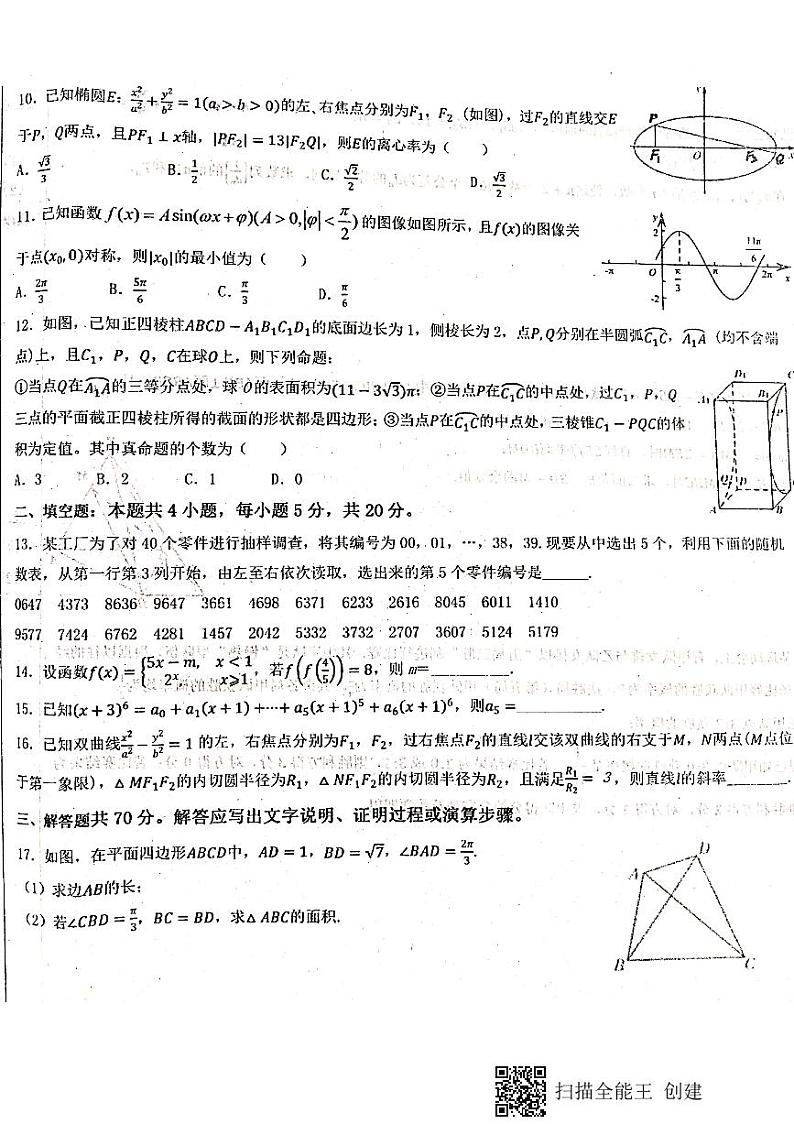 10. 已知椭圆E: x²/a² + y²/b² = 1(a > b > 0)的左、右焦点分别为F₁, F₂ (如图), 过F₂的直线交E
于P, Q两点, 且PF₁ ⊥ x轴, |PF₂| = 13|F₂Q|, 则E的离心率为 ( )
A. √3/3 B. 1/2 C. √2/2 D. √3/2
y P F₁ O F₂ Q x
11. 已知函数 f(x) = A sin(ωx + φ)(A > 0, |φ| < π/2) 的图像如图所示, 且f(x)的图像关
于点(x₀, 0)对称, 则|x₀|的最小值为 ( )
A. 2π/3 B. 5π/6 C. π/3 D. π/6
y 2 -π O π/3 π 11π/6 2π x -2
12. 如图, 已知正四棱柱ABCD − A₁B₁C₁D₁的底面边长为 1, 侧棱长为 2, 点P, Q分别在半圆弧C₁C, A₁A (均不含端
点)上, 且C₁, P, Q, C在球O上, 则下列命题:
①当点Q在A₁A的三等分点处, 球 O的表面积为(11 − 3√3)π; ②当点P在C₁C的中点处, 过C₁, P, Q
三点的平面截正四棱柱所得的截面的形状都是四边形; ③当点P在C₁C的中点处, 三棱锥C₁ − PQC的体
积为定值。其中真命题的个数为 ( )
A. 3 B. 2 C. 1 D. 0
D₁ C A₁ B₁ P Q D A B
二、填空题: 本题共 4 小题, 每小题 5 分, 共 20 分。
13. 某工厂为了对 40 个零件进行抽样调查, 将其编号为 00, 01, …, 38, 39. 现要从中选出 5 个, 利用下面的随机
数表, 从第一行第 3 列开始, 由左至右依次读取, 选出来的第 5 个零件编号是______.
0647 4373 8636 9647 3661 4698 6371 6233 2616 8045 6011 1410
9577 7424 6762 4281 1457 2042 5332 3732 2707 3607 5124 5179
14. 设函数f(x) = {5x − m, x < 1; 2ˣ, x ⩾ 1, 若f(f(4/5)) = 8, 则 m=__________.
15. 已知(x + 3)⁶ = a₀ + a₁(x + 1) +⋯+ a₅(x + 1)⁵ + a₆(x + 1)⁶, 则a₅ =__________.
16. 已知双曲线x²/a² − y²/b² = 1 的左, 右焦点分别为F₁, F₂, 过右焦点F₂的直线l交该双曲线的右支于M, N两点(M点位
于第一象限), △ MF₁F₂的内切圆半径为R₁, △ NF₁F₂的内切圆半径为R₂, 且满足R₁/R₂ = 3, 则直线l的斜率________.
三、解答题共 70 分。解答应写出文字说明、证明过程或演算步骤。
17. 如图, 在平面四边形ABCD中, AD = 1, BD = √7, ∠BAD = 2π/3.
(1) 求边AB的长;
(2) 若∠CBD = π/3, BC = BD, 求△ ABC的面积.
D A B C
扫描全能王 创建